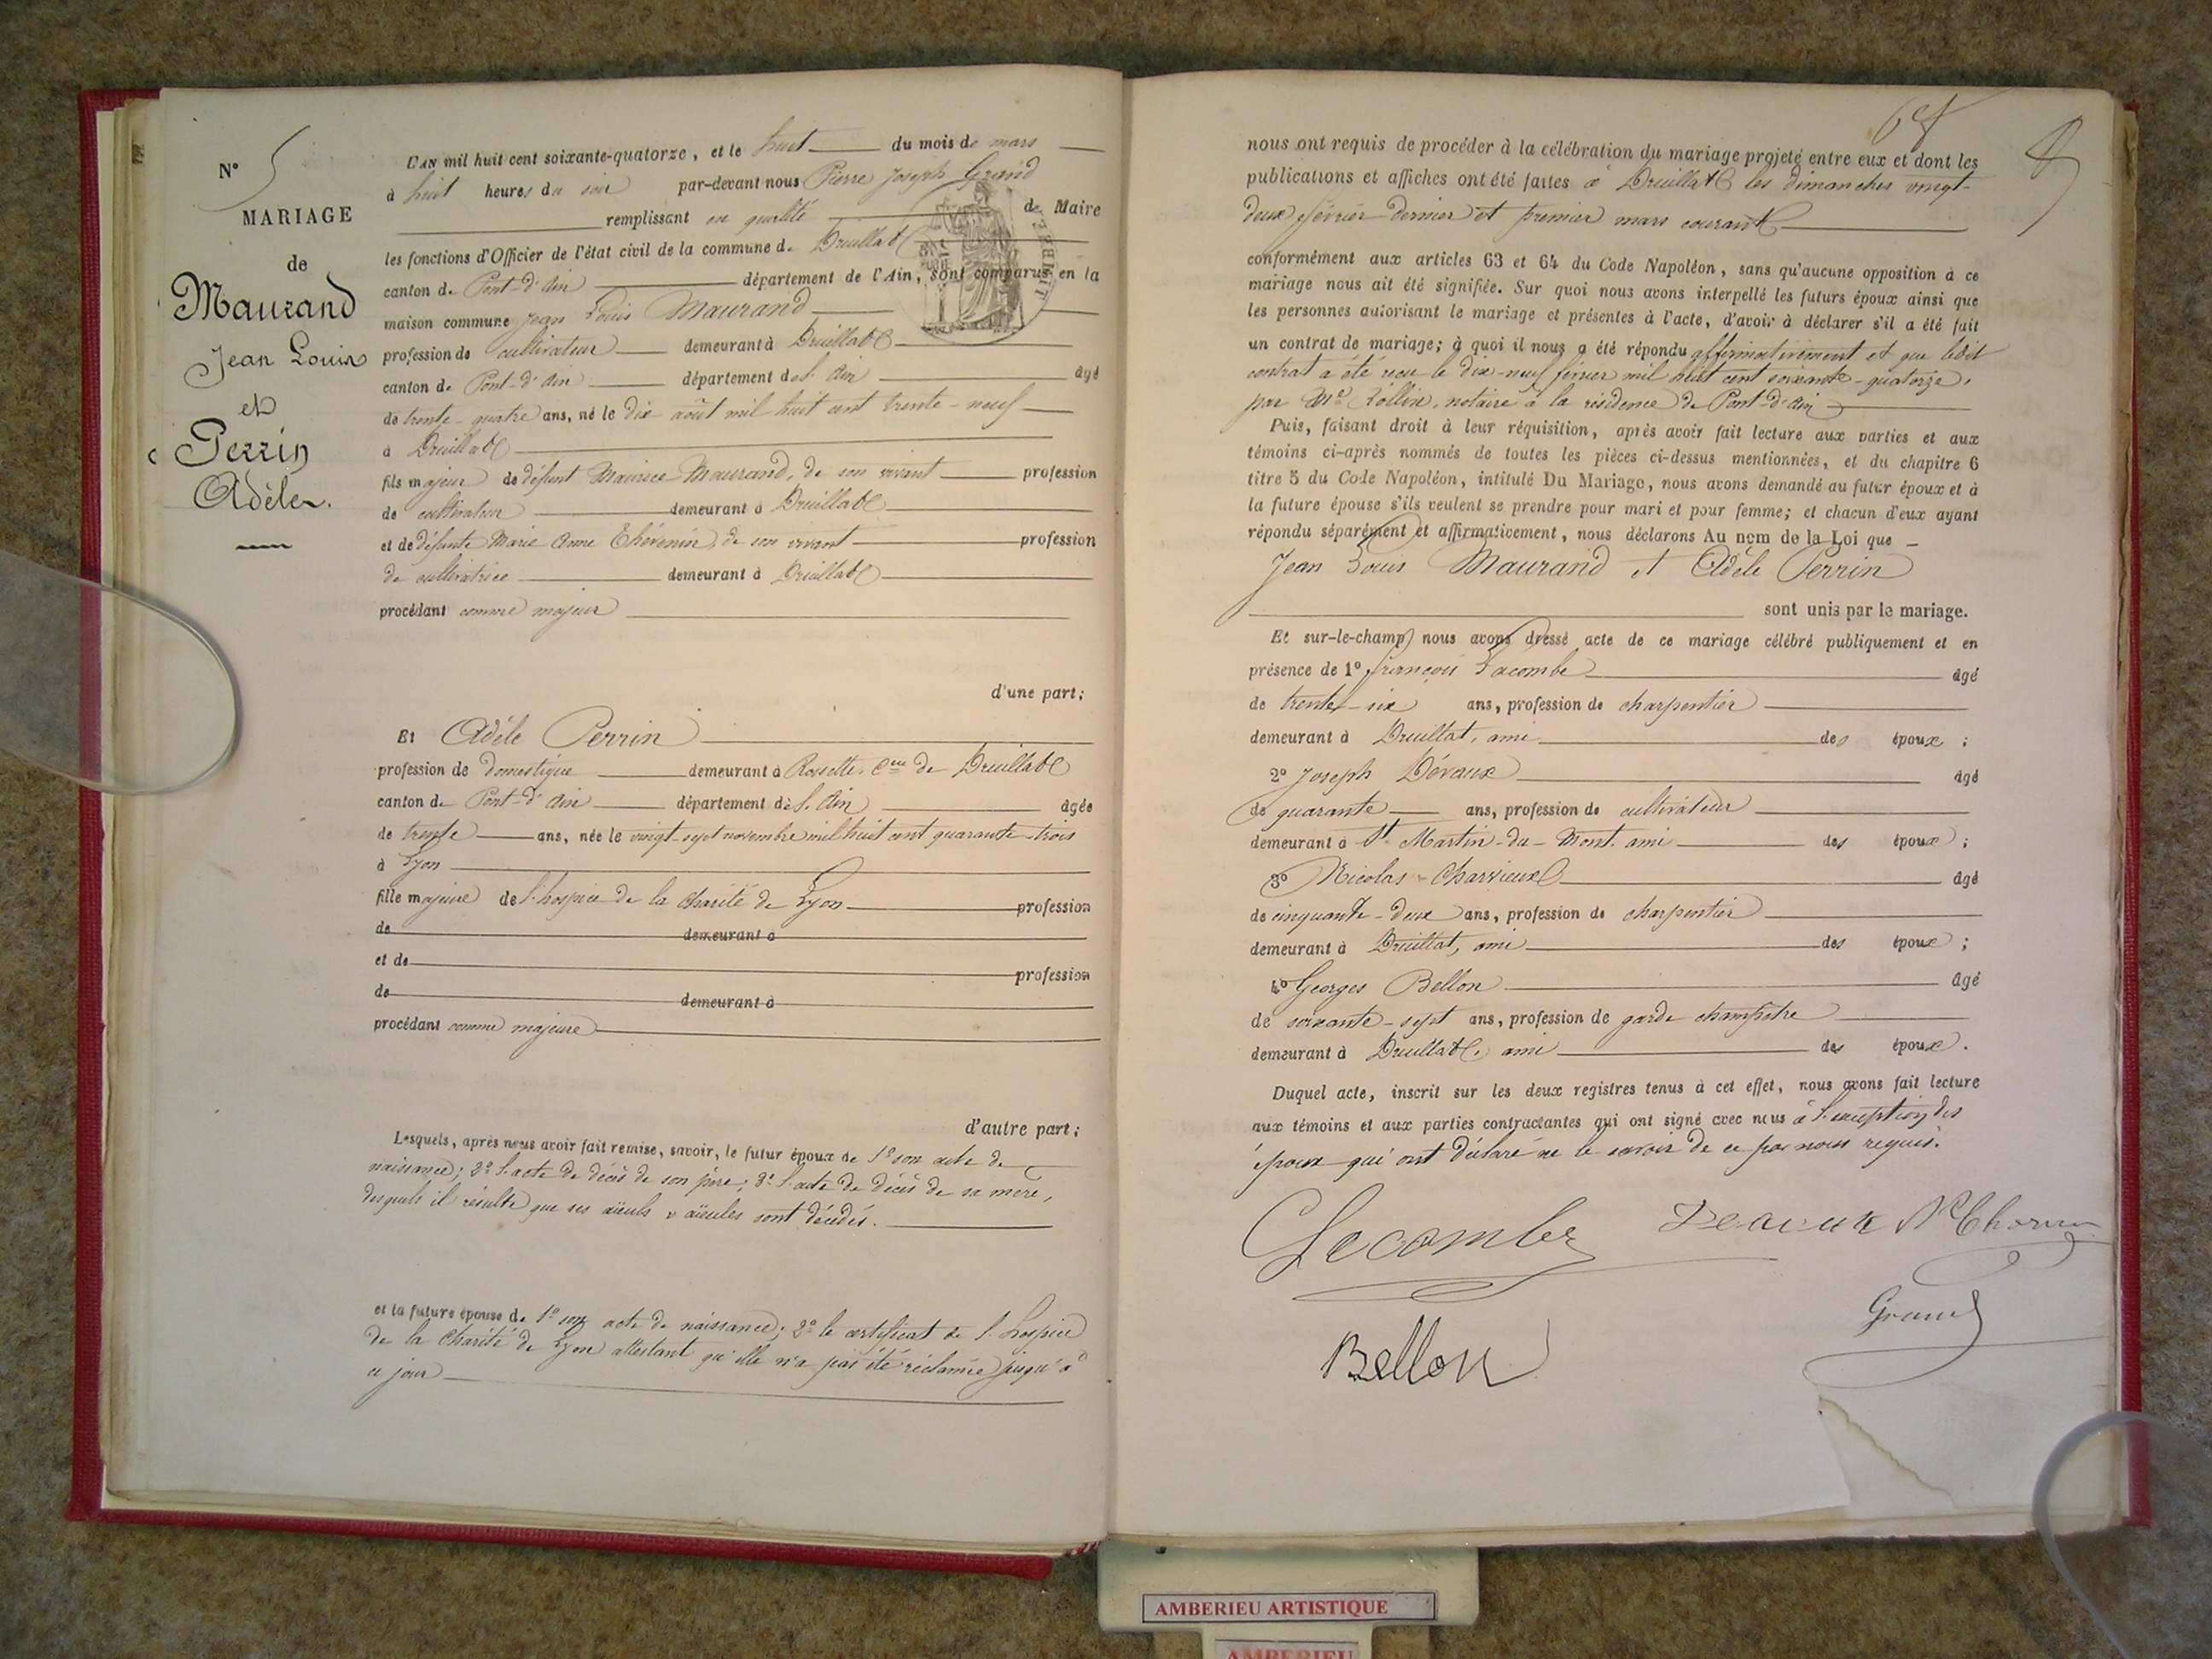 N° 5
MARIAGE
de
Maurand
Jean Louis
et
Perrin
Adèle.
L'AN mil huit cent soixante-quatorze, et le huit du mois de mars
à huit heures du soir par-devant nous Pierre Joseph Grand
remplissant en qualité de Maire
les fonctions d'Officier de l'état civil de la commune de Druillat
canton de Pont-d'Ain département de l'Ain, sont comparus en la
maison commune Jean Louis Maurand
profession de cultivateur demeurant à Druillat
canton de Pont-d'Ain département de l'Ain âgé
de trente-quatre ans, né le dix août mil huit cent trente-neuf
à Druillat
fils majeur de défunt Maurice Maurand, de son vivant profession
de cultivateur demeurant à Druillat
et de défunte Marie Anne Thévenin, de son vivant profession
de cultivatrice demeurant à Druillat
procédant comme majeur
d'une part;
Et Adèle Perrin
profession de domestique demeurant à Rossette, Cne de Druillat
canton de Pont-d'Ain département de l'Ain âgée
de trente ans, née le vingt-sept novembre mil huit cent quarante-trois
à Lyon
fille majeure de l'hospice de la Charité de Lyon profession
de demeurant à
et de profession
de demeurant à
procédant comme majeure
d'autre part;
Lesquels, après nous avoir fait remise, savoir, le futur époux de 1° son acte de
naissance; 2° l'acte de décès de son père; 3° l'acte de décès de sa mère,
desquels il résulte que ses aïeuls & aïeules sont décédés.
et la future épouse de 1° son acte de naissance; 2° le certificat de l'hospice
de la Charité de Lyon attestant qu'elle n'a pas été réclamée jusqu'à
ce jour
nous ont requis de procéder à la célébration du mariage projeté entre eux et dont les
publications et affiches ont été faites à Druillat les dimanches vingt-
deux février dernier et premier mars courant
conformément aux articles 63 et 64 du Code Napoléon, sans qu'aucune opposition à ce
mariage nous ait été signifiée. Sur quoi nous avons interpellé les futurs époux ainsi que
les personnes autorisant le mariage et présentes à l'acte, d'avoir à déclarer s'il a été fait
un contrat de mariage; à quoi il nous a été répondu affirmativement et que ledit
contrat a été reçu le dix-neuf février mil huit cent soixante-quatorze,
par Me Rollin, notaire à la résidence de Pont-d'Ain
Puis, faisant droit à leur réquisition, après avoir fait lecture aux parties et aux
témoins ci-après nommés de toutes les pièces ci-dessus mentionnées, et du chapitre 6
titre 5 du Code Napoléon, intitulé Du Mariage, nous avons demandé au futur époux et à
la future épouse s'ils veulent se prendre pour mari et pour femme; et chacun d'eux ayant
répondu séparément et affirmativement, nous déclarons Au nom de la Loi que
Jean Louis Maurand et Adèle Perrin
sont unis par le mariage.
Et sur-le-champ nous avons dressé acte de ce mariage célébré publiquement et en
présence de 1° françois Lacombe âgé
de trente-six ans, profession de charpentier
demeurant à Druillat, ami des époux;
2° Joseph Dévaux âgé
de quarante ans, profession de cultivateur
demeurant à St Martin-du-Mont, ami des époux;
3° Nicolas Charvieux âgé
de cinquante-deux ans, profession de charpentier
demeurant à Druillat, ami des époux;
4° Georges Bellon âgé
de soixante-sept ans, profession de garde champêtre
demeurant à Druillat, ami des époux.
Duquel acte, inscrit sur les deux registres tenus à cet effet, nous avons fait lecture
aux témoins et aux parties contractantes qui ont signé avec nous à l'exception des
époux qui ont déclaré ne le savoir de ce par nous requis.
Lecombe
Bellon
Grand
AMBERIEU ARTISTIQUE
AMBERIEU